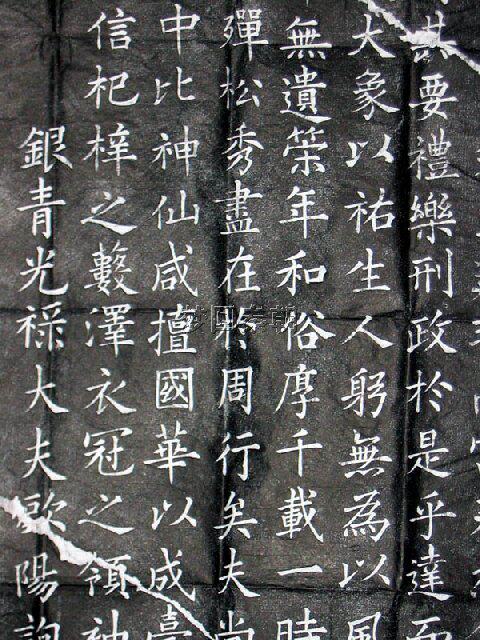 其要禮樂刑政於是乎達而
大象以祐生人躬無為以風
無遺筞年和俗厚千載一時
彈松秀盡在於周行矣夫尚
中比神仙咸擅國華以成臺
信杞梓之藪澤衣冠之領袖
銀青光祿大夫歐陽詢